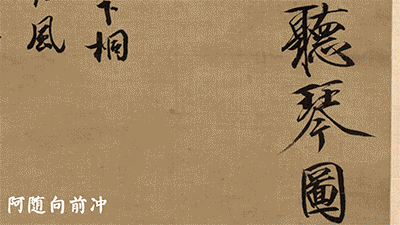 聽琴圖
下桐
風
阿随向前冲